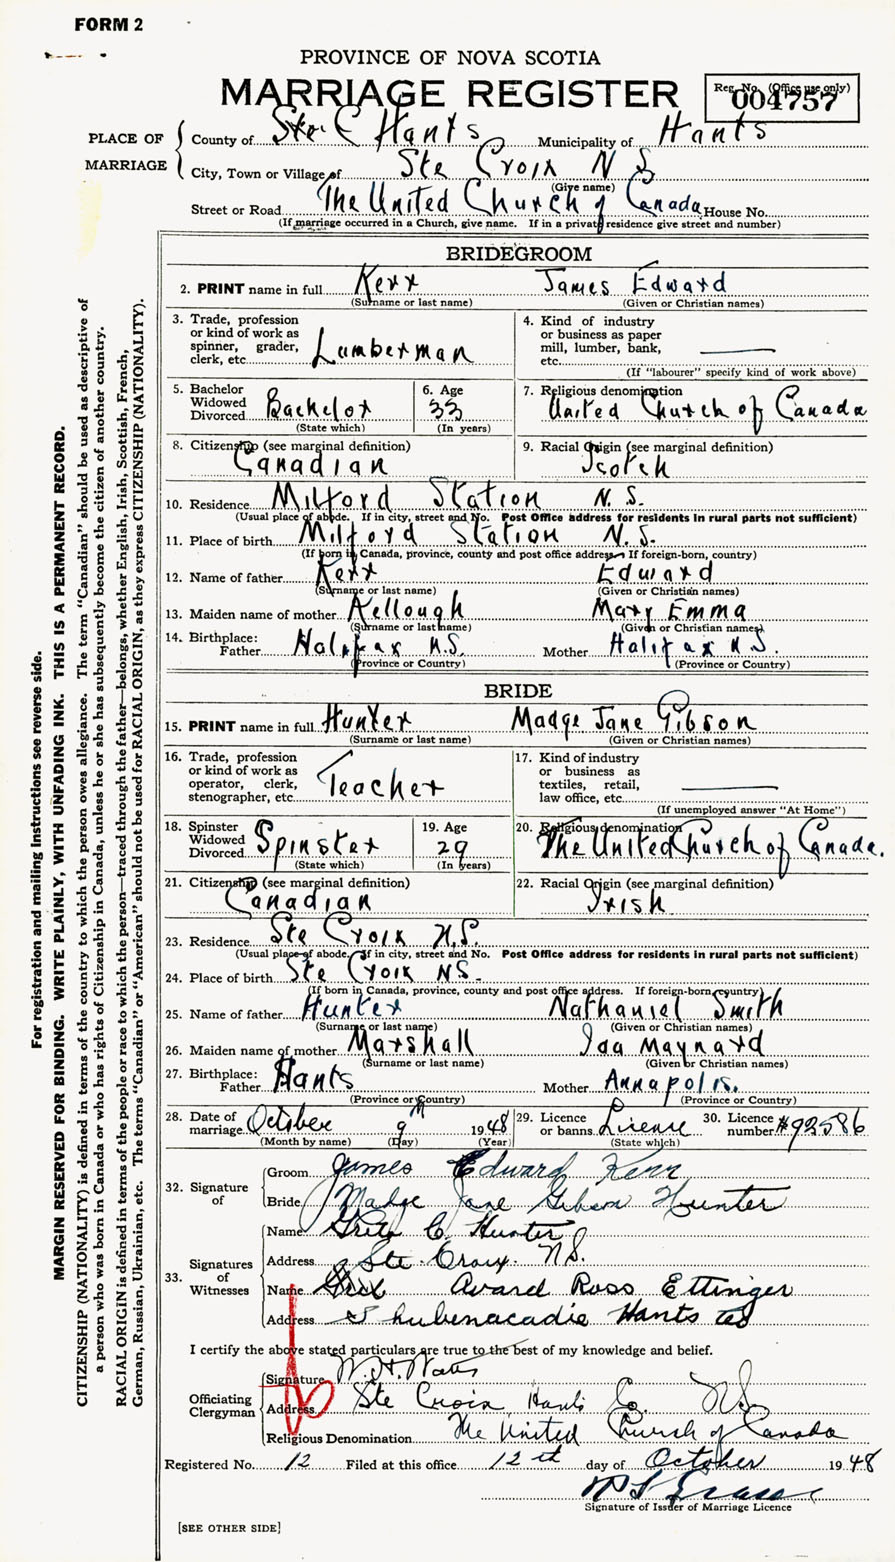 FORM 2
PROVINCE OF NOVA SCOTIA
MARRIAGE REGISTER
Reg. No. (Office use only)
004757
PLACE OF MARRIAGE
County of Hants Municipality of Hants
City, Town or Village of Ste Croix N S
(Give name)
Street or Road The United Church of Canada House No.
(If marriage occurred in a Church, give name. If in a private residence give street and number)
BRIDEGROOM
2. PRINT name in full Kerr James Edward
(Surname or last name) (Given or Christian names)
3. Trade, profession or kind of work as spinner, grader, clerk, etc. Lumberman
4. Kind of industry or business as paper mill, lumber, bank, etc. ———
(If "labourer" specify kind of work above)
5. Bachelor Widowed Divorced Bachelor
(State which)
6. Age 33
(In years)
7. Religious denomination United Church of Canada
8. Citizenship (see marginal definition) Canadian
9. Racial Origin (see marginal definition) Scotch
10. Residence Milford Station N. S.
(Usual place of abode. If in city, street and No. Post Office address for residents in rural parts not sufficient)
11. Place of birth Milford Station N. S.
(If born in Canada, province, county and post office address. If foreign-born, country)
12. Name of father Kerr Edward
(Surname or last name) (Given or Christian names)
13. Maiden name of mother Kellough Mary Emma
(Surname or last name) (Given or Christian names)
14. Birthplace: Father Halifax N.S. Mother Halifax N.S.
(Province or Country) (Province or Country)
BRIDE
15. PRINT name in full Hunter Madge Jane Gibson
(Surname or last name) (Given or Christian names)
16. Trade, profession or kind of work as operator, clerk, stenographer, etc. Teacher
17. Kind of industry or business as textiles, retail, law office, etc. ———
(If unemployed answer "At Home")
18. Spinster Widowed Divorced Spinster
(State which)
19. Age 29
(In years)
20. Religious denomination The United Church of Canada.
21. Citizenship (see marginal definition) Canadian
22. Racial Origin (see marginal definition) Irish
23. Residence Ste Croix N.S.
(Usual place of abode. If in city, street and No. Post Office address for residents in rural parts not sufficient)
24. Place of birth Ste Croix NS.
(If born in Canada, province, county and post office address. If foreign-born, country)
25. Name of father Hunter Nathaniel Smith
(Surname or last name) (Given or Christian names)
26. Maiden name of mother Marshall Ida Maynard
(Surname or last name) (Given or Christian names)
27. Birthplace: Father Hants Mother Annapolis.
(Province or Country) (Province or Country)
28. Date of marriage October 9th 1948
(Month by name) (Day) (Year)
29. Licence or banns License
(State which)
30. Licence number #92586
32. Signature of
Groom James Edward Kerr
Bride Madge Jane Gibson Hunter
33. Signatures of Witnesses
Name Greta C. Hunter
Address Ste. Croix. N.S.
Name Avard Ross Ettinger
Address Shubenacadie Hants co
I certify the above stated particulars are true to the best of my knowledge and belief.
Officiating Clergyman
Signature W. H. Watts
Address Ste Croix Hants Co. N.S.
Religious Denomination The United Church of Canada
Registered No. 12 Filed at this office 12th day of October 1948
Signature of Issuer of Marriage Licence
[SEE OTHER SIDE]
For registration and mailing instructions see reverse side.
MARGIN RESERVED FOR BINDING. WRITE PLAINLY, WITH UNFADING INK. THIS IS A PERMANENT RECORD.
CITIZENSHIP (NATIONALITY) is defined in terms of the country to which the person owes allegiance. The term "Canadian" should be used as descriptive of
a person who was born in Canada or who has rights of Citizenship in Canada, unless he or she has subsequently become the citizen of another country.
RACIAL ORIGIN is defined in terms of the people or race to which the person—traced through the father—belongs, whether English, Irish, Scottish, French,
German, Russian, Ukrainian, etc. The terms "Canadian" or "American" should not be used for RACIAL ORIGIN, as they express CITIZENSHIP (NATIONALITY).